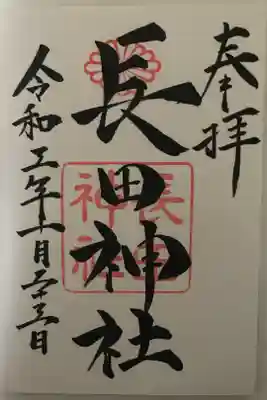 奉拝
長田神社
長田
神社
令和五年十一月二十三日